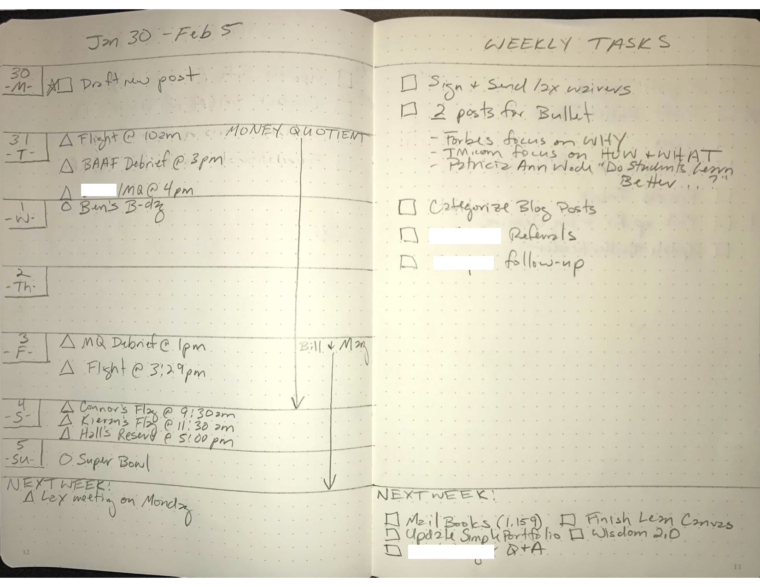 Jan 30 - Feb 5
30
-M-
Draft new post
31
-T-
Flight @ 10am MONEY QUOTIENT
BAAF Debrief @ 3pm
/MQ @ 4pm
1
-W-
Ben's B-day
2
-Th-
3
-F-
MQ Debrief @ 1pm Bill + Mary
Flight @ 3:29pm
4
-S-
Connor's Flag @ 9:30am
Kieran's Flag @ 11:30 am
Hall's Reserv @ 5:00 pm
5
-Su-
Super Bowl
NEXT WEEK!
Lex meeting on Monday
11
WEEKLY TASKS
Sign + Send Lax waivers
2 posts for Bullet
- Forbes focus on WHY
- TM.com focus on HOW + WHAT
- Patricia Ann Wade "Do Students Learn
Better...?"
Categorize Blog Posts
Referrals
follow-up
NEXT WEEK!
Mail Books (1.159) Finish Lean Canvas
Update Simple Portfolio Wisdom 2.0
Q+A
11